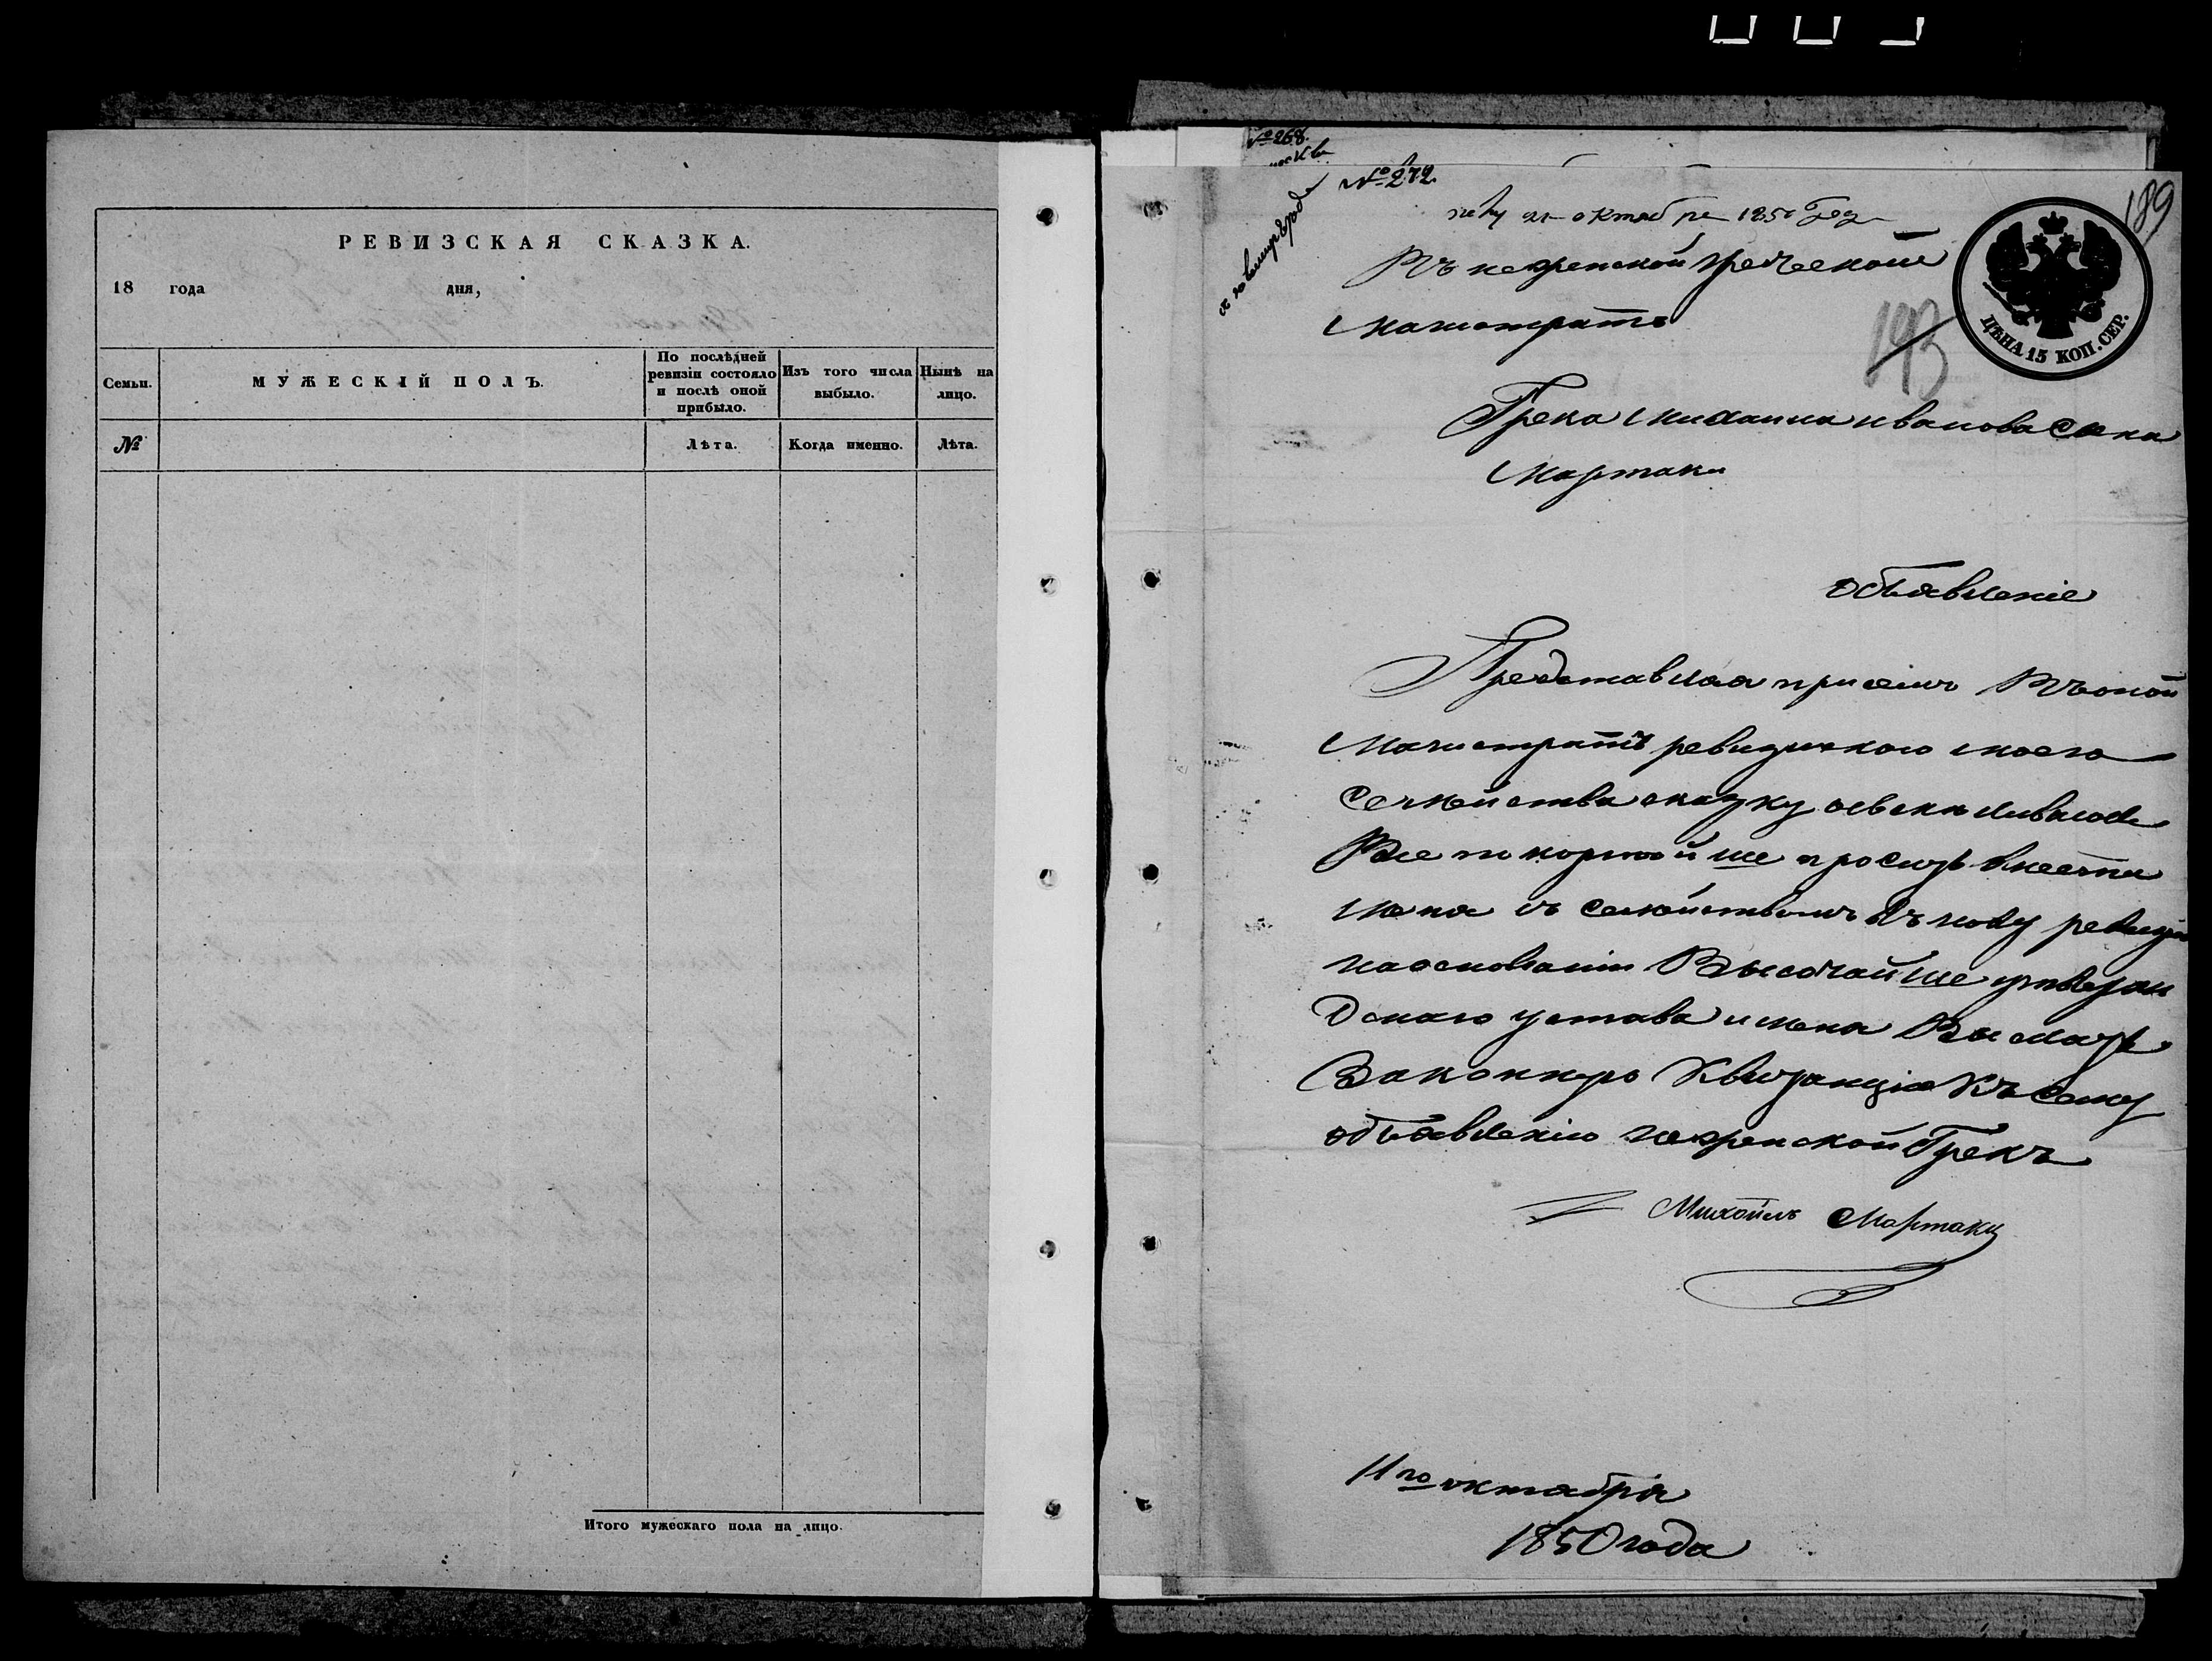 РЕВИЗСКАЯ СКАЗКА.
18 года дня,
Семьи.
МУЖЕСКІЙ ПОЛЪ.
По послѣдней ревизіи состояло и послѣ оной прибыло.
Изъ того числа выбыло.
Нынѣ на лицо.
№
Лѣта.
Когда именно.
Лѣта.
Итого мужескаго пола на лицо.
№ 268.
№ 272.
октября 1850 год
189
193
ЦѢНА 15 КОП. СЕР.
Въ неженской греческой
магистратъ
Грека Михаила иванова Сына
Мартаки
объявленіе
Представляя присемъ Въоной
Магистратъ ревизского моего
Семейства сказку
покорнейше просить внести
меня съ Семействомъ Въ нову ревизію
наоснованіи Высочайше утверж
Денаго устава и меня
квитанцію Къ Сему
объявленію неженской Грекъ
Михаилъ Мартаки
11го октября
1850 года